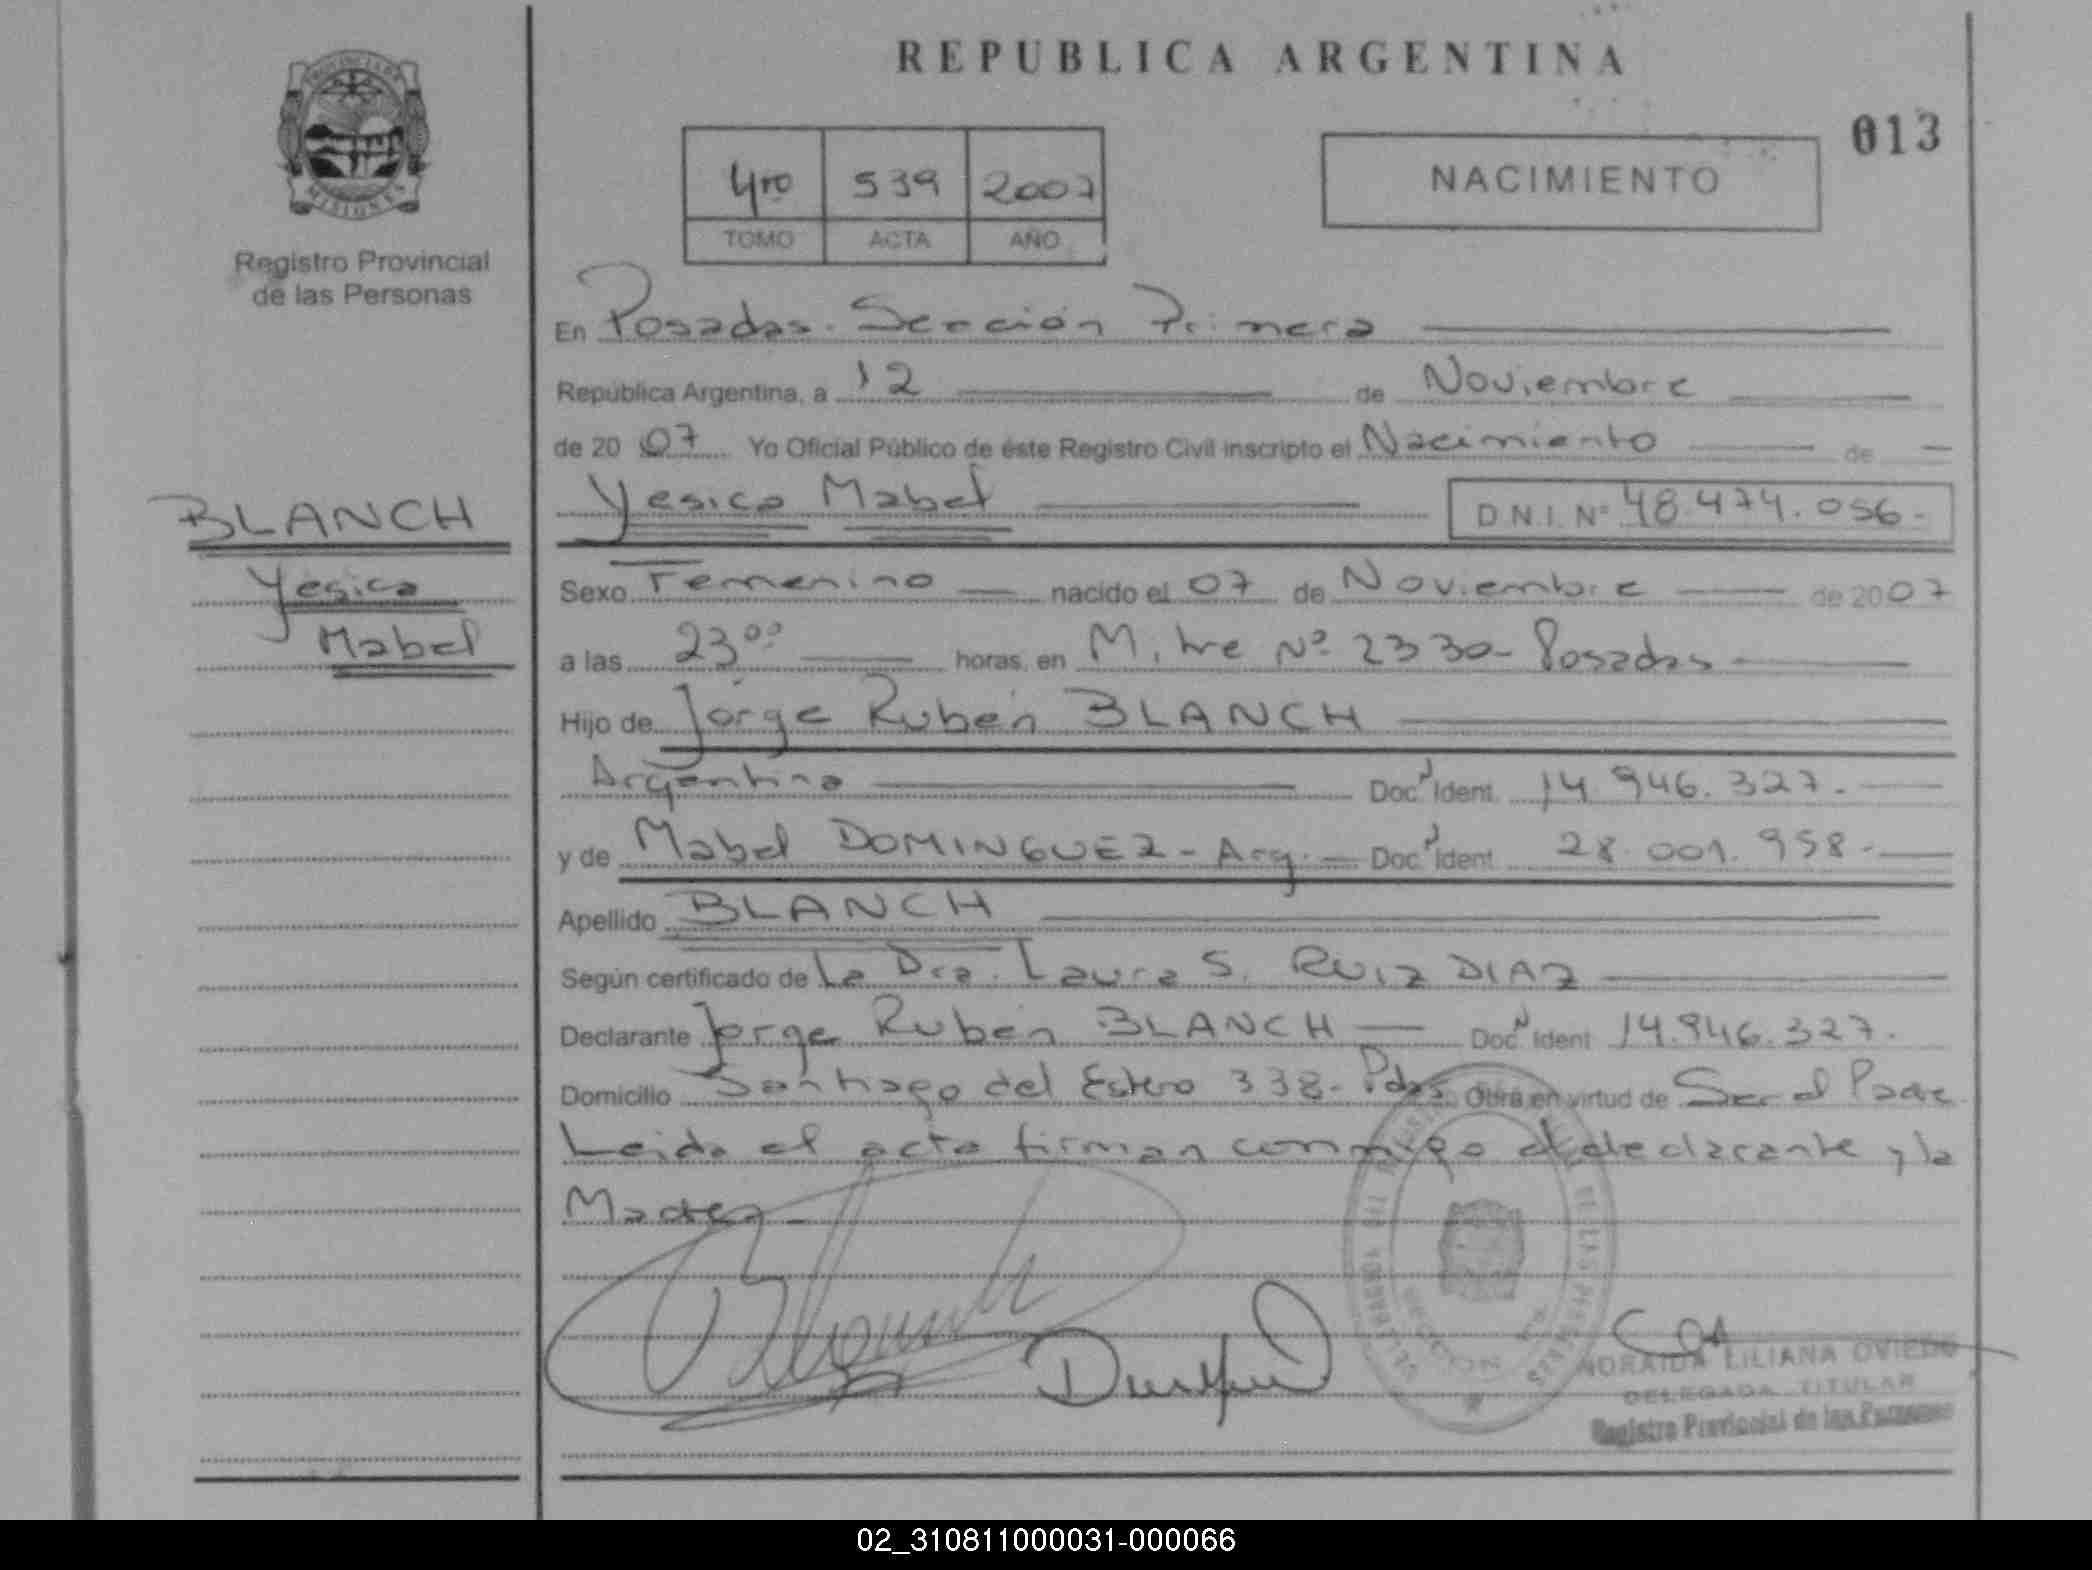 REPUBLICA ARGENTINA
013
PROVINCIA DE
MISIONES
Registro Provincial
de las Personas
4to 539 2007
TOMO ACTA AÑO
NACIMIENTO
En Posadas. Sección Primera
República Argentina, a 12 de Noviembre
de 20 07 Yo Oficial Público de éste Registro Civil inscripto el Nacimiento de
Yesica Mabel D.N.I. Nº 48.474.056.-
BLANCH
Yesica
Mabel
Sexo Femenino nacido el 07 de Noviembre de 2007
a las 23⁰⁰ horas, en Mitre Nº 2330- Posadas
Hijo de Jorge Rubén BLANCH
Argentino Doc. Ident. 14.946.327.-
y de Mabel DOMINGUEZ - Arg. Doc. Ident. 28.001.958.-
Apellido BLANCH
Según certificado de La Dra. Laura S. RUIZ DIAZ
Declarante Jorge Rubén BLANCH Doc. Ident 14.946.327.
Domicilio Santiago del Estero 338- Pdas Obra en virtud de Ser el Padre
Leida el acta firman conmigo el declarante y la
Madre.-
NORAIDA LILIANA OVIEDO
DELEGADA TITULAR
Registro Provincial de las Personas
02_310811000031-000066